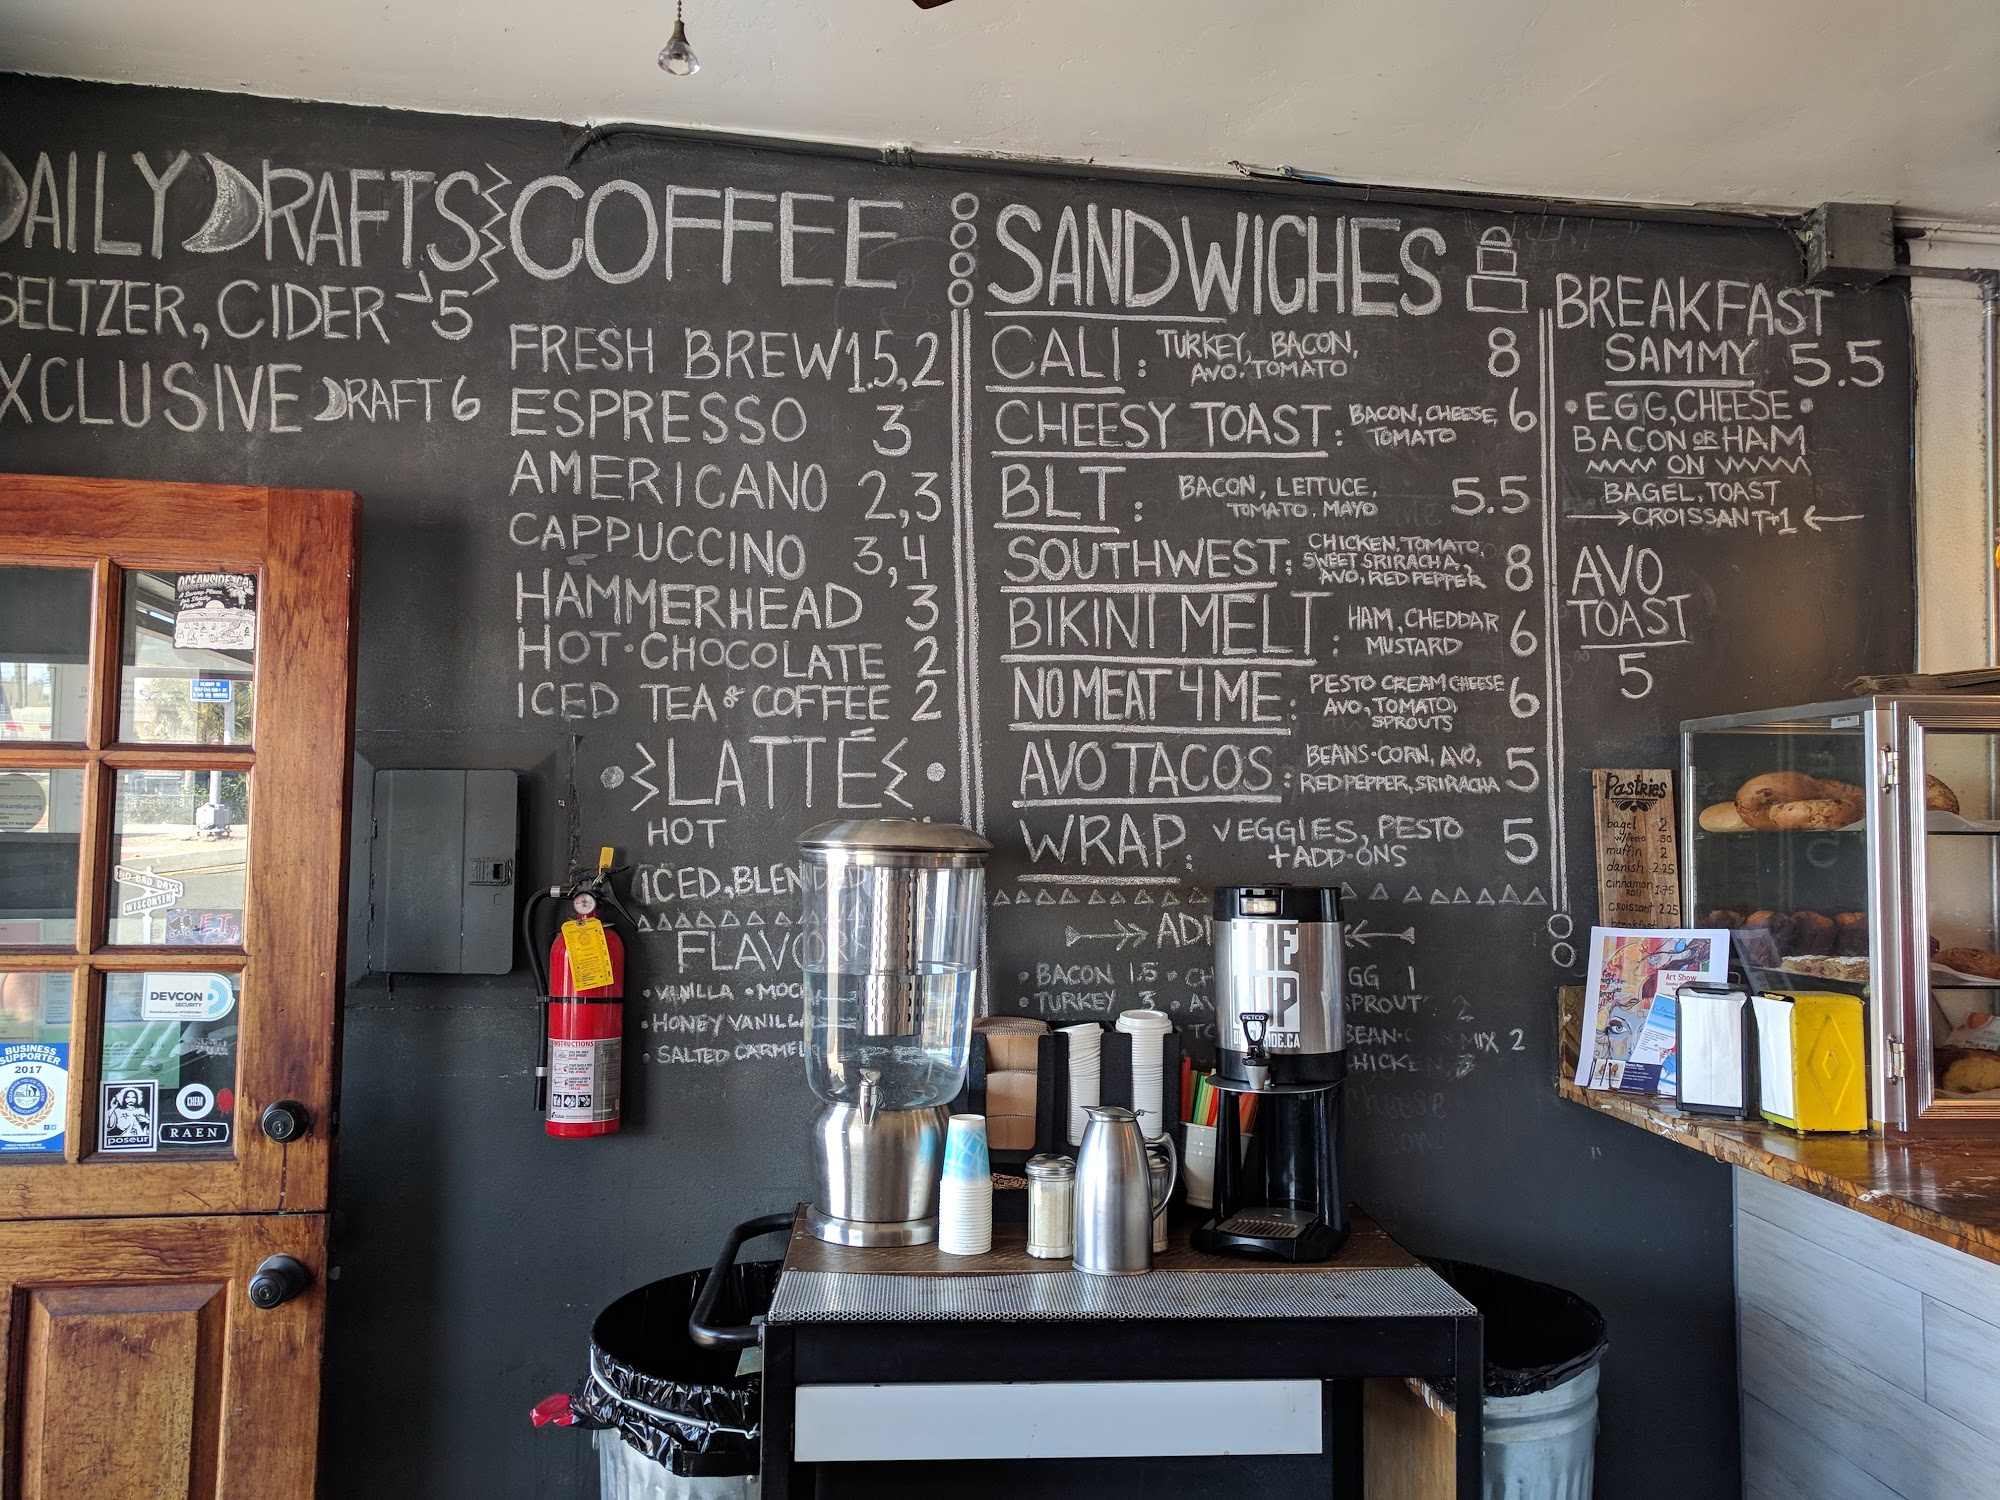 DAILY DRAFTS
SELTZER, CIDER 5
EXCLUSIVE DRAFT 6
COFFEE
FRESH BREW 1.5, 2
ESPRESSO 3
AMERICANO 2, 3
CAPPUCCINO 3, 4
HAMMERHEAD 3
HOT · CHOCOLATE 2
ICED TEA & COFFEE 2
LATTÉ
HOT
ICED, BLENDED
FLAVORS
• VANILLA • MOCHA
• HONEY VANILLA
• SALTED CARMEL
SANDWICHES
CALI: TURKEY, BACON, 8
AVO. TOMATO
CHEESY TOAST: BACON, CHEESE, 6
TOMATO
BLT: BACON, LETTUCE, 5.5
TOMATO, MAYO
SOUTHWEST: CHICKEN, TOMATO, 8
SWEET SRIRACHA,
AVO, RED PEPPER
BIKINI MELT: HAM, CHEDDAR 6
MUSTARD
NO MEAT 4 ME: PESTO CREAM CHEESE 6
AVO, TOMATO,
SPROUTS
AVO TACOS: BEANS·CORN, AVO, 5
RED PEPPER, SRIRACHA
WRAP: VEGGIES, PESTO 5
+ADD-ONS
• BACON 1.5
EGG 1
• TURKEY 3
SPROUT 2
BEAN MIX 2
BREAKFAST
SAMMY 5.5
• EGG, CHEESE •
BACON OR HAM
ON
BAGEL, TOAST
CROISSANT+1
AVO
TOAST
5
Pastries
bagel 2
w/pesto .50
muffin 2
danish 2.25
cinnamon 1.75
roll
croissant 2.25
breakfast
Art Show
OCEANSIDE, CA
A Sunny Place
for Shady
People
NO BAD DAYS
WISCONSIN
DEVCON
SECURITY
BUSINESS
SUPPORTER
2017
poseur
CHEM
RAEN
INSTRUCTIONS
FETCO